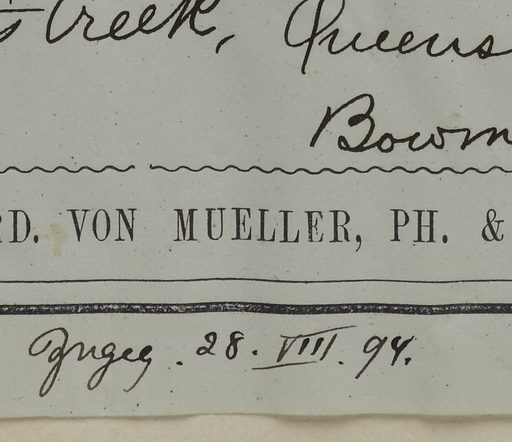 Creek, Queens
Bowm
RD. VON MUELLER, PH. &
28. VIII. 94.